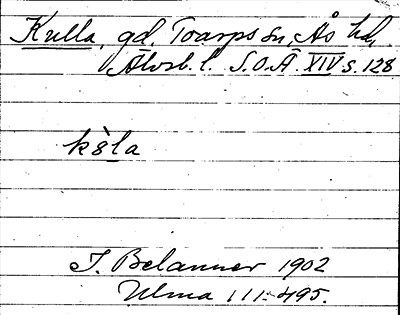 Kulla, gd. Toarps sn, Ås hd,
Älvsb. l. S.O.Ä. XIV s. 128
kö̀la
I. Belanner 1902
Ulma 111:495.